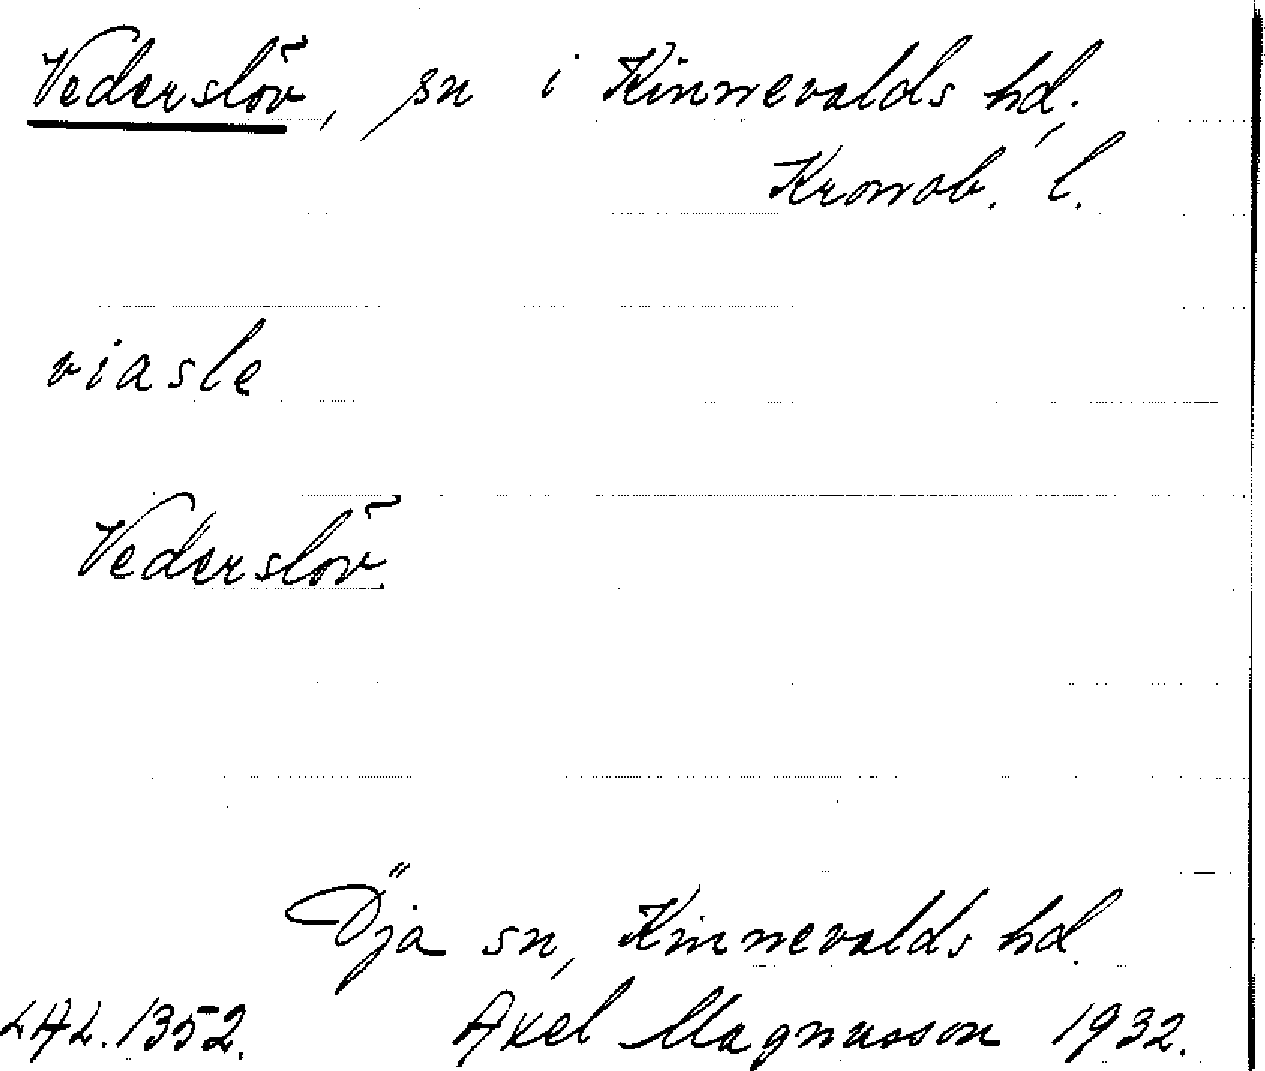 Vederslöv, sn i Kinnevalds hd,
Kronob. l.
viasle
Vederslöv.
Öja sn, Kinnevalds hd.
LAL. 1352. Axel Magnusson 1932.